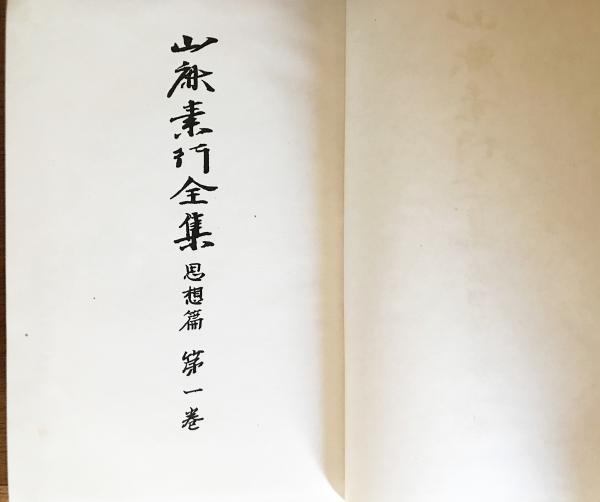 山鹿素行全集 思想篇 第一巻